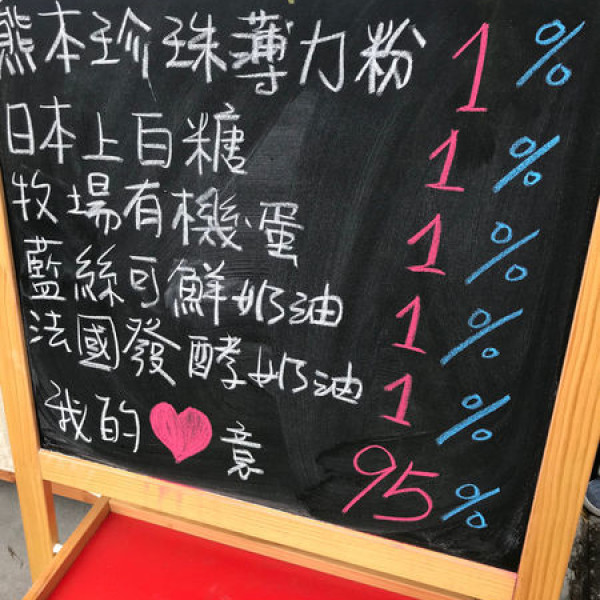 熊本珍珠薄力粉 1%
日本上白糖 1%
牧場有機蛋 1%
藍絲可鮮奶油 1%
法國發酵奶油 1%
我的♥意 95%